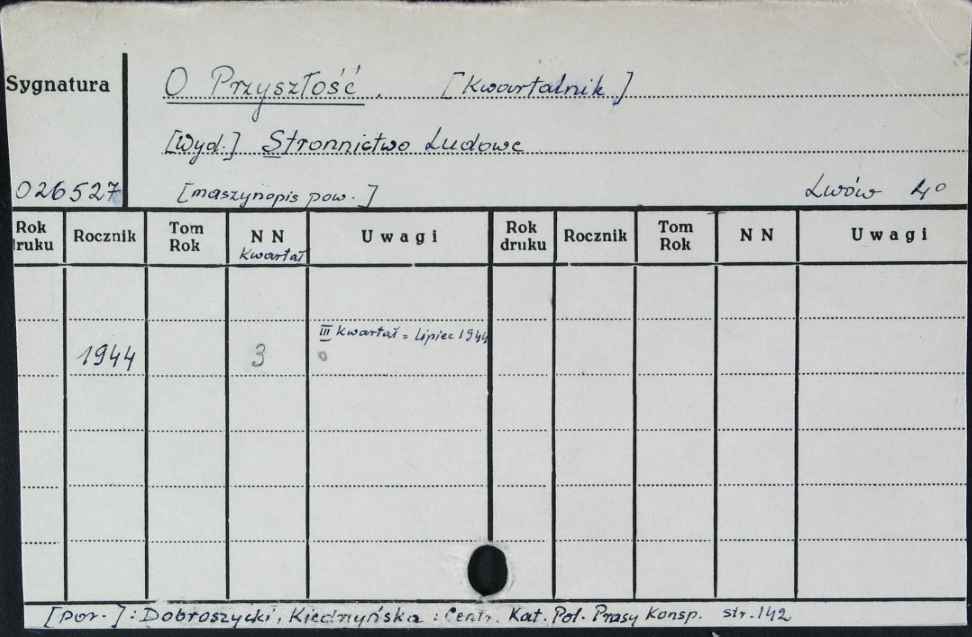 Sygnatura
O Przyszłość. [Kwartalnik]
[Wyd.] Stronnictwo Ludowe
026527 [maszynopis pow.] Lwów 4°
Rok druku Rocznik Tom Rok NN Kwartał Uwagi Rok druku Rocznik Tom Rok NN Uwagi
III kwartał = Lipiec 1944
1944 3
[por.]: Dobroszycki, Kiedrzyńska: Centr. Kat. Pol. Prasy Konsp. str. 142